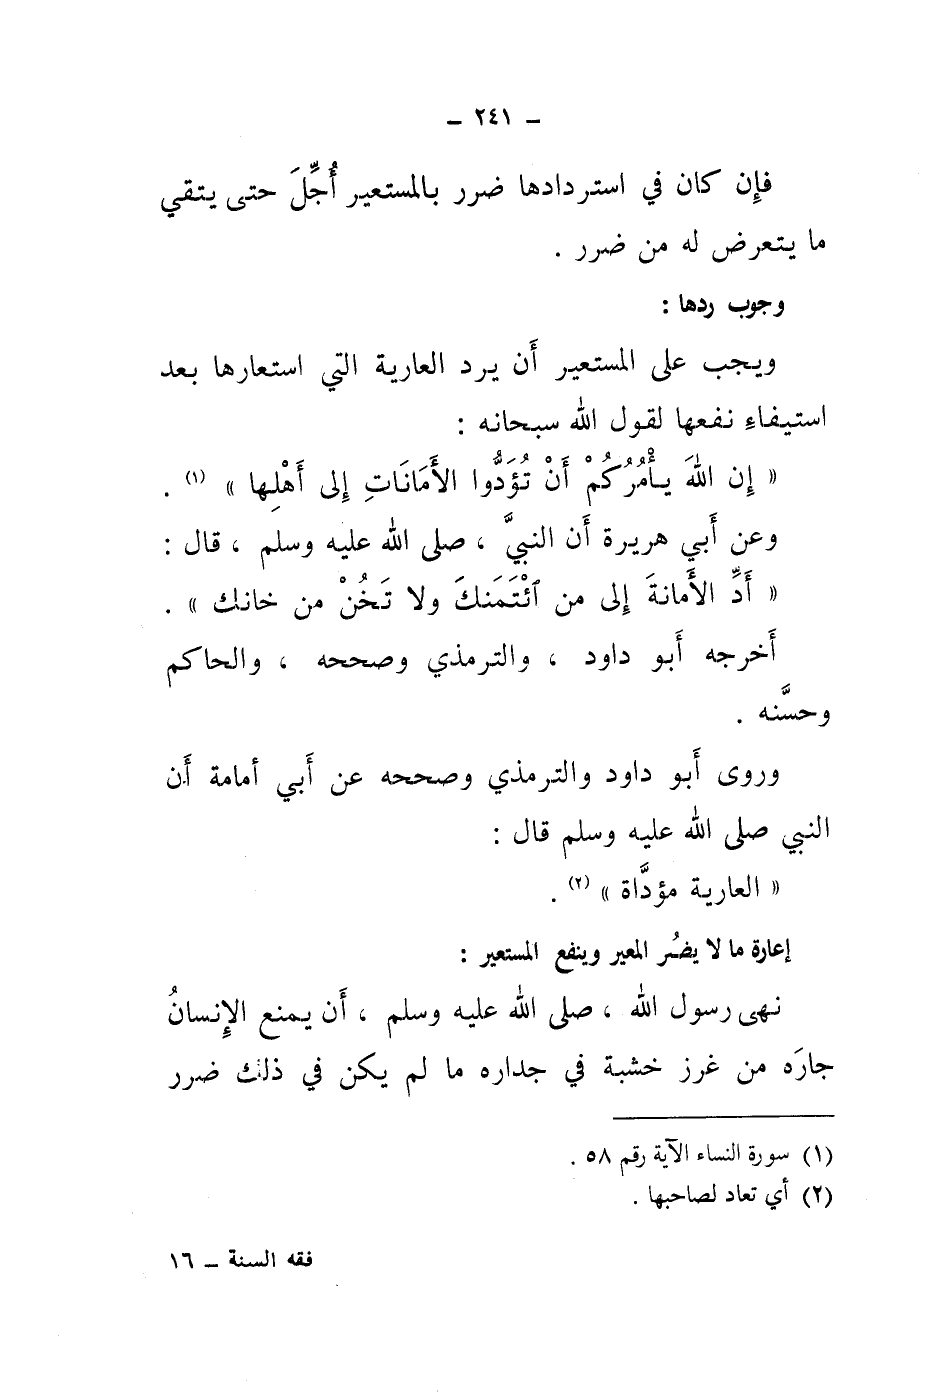 – ٢٤١ –
فإِن كان في استردادها ضرر بالمستعير أُجِّلَ حتى يتقي
ما يتعرض له من ضرر .
وجوب ردها :
ويجب على المستعير أَن يرد العارية التي استعارها بعد
استيفاءِ نفعها لقول الله سبحانه :
« إِن اللهَ يأْمُرُكُمْ أَنْ تُؤَدُّوا الأَمَانَاتِ إِلى أَهْلِها » (١) .
وعن أَبي هريرة أَن النبيَّ ، صلى الله عليه وسلم ، قال :
« أَدِّ الأَمانةَ إِلى من ٱئْتَمَنكَ ولا تَخُنْ من خانك » .
أَخرجه أَبو داود ، والترمذي وصححه ، والحاكم
وحسَّنه .
وروى أَبو داود والترمذي وصححه عن أَبي أمامة أَن
النبي صلى الله عليه وسلم قال :
« العارية مؤدَّاة » (٢) .
إعارة ما لا يضُر المعير وينفع المستعير :
نهى رسول الله ، صلى الله عليه وسلم ، أَن يمنع الإِنسانُ
جارَه من غرز خشبة في جداره ما لم يكن في ذلك ضرر
(١) سورة النساء الآية رقم ٥٨ .
(٢) أي تعاد لصاحبها .
فقه السنة – ١٦